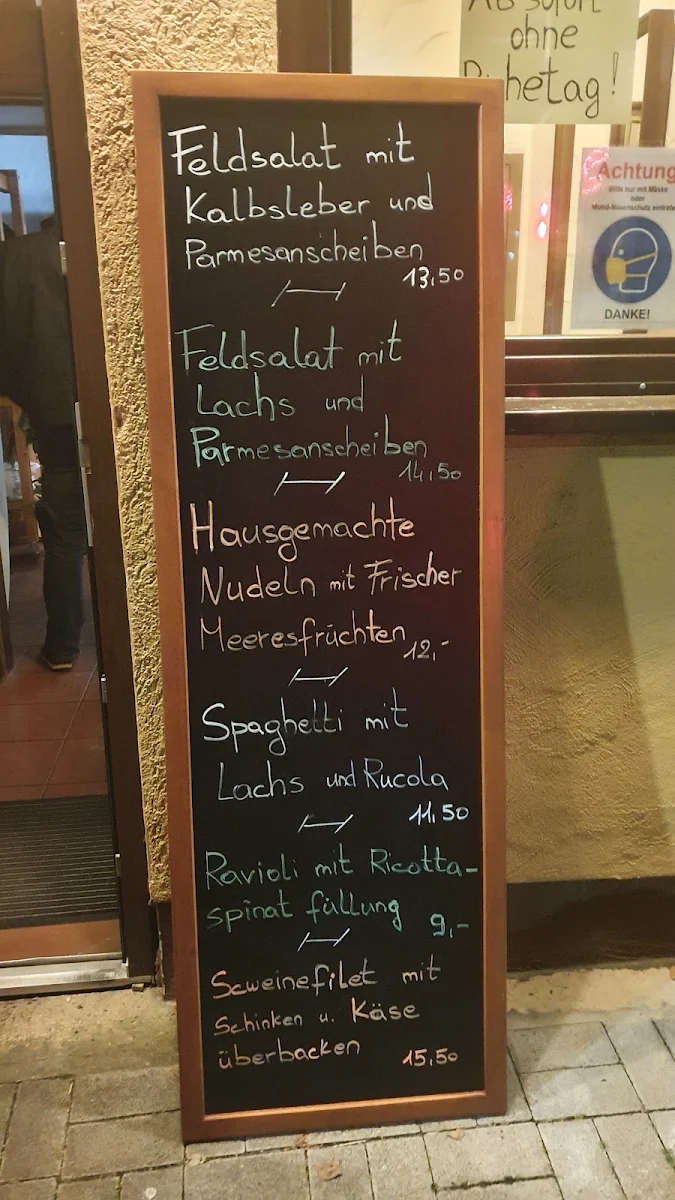 Ab sofort
ohne
Ruhetag!
Achtung
Bitte nur mit Maske
oder
Mund-Nasenschutz eintrete
DANKE!
Feldsalat mit
Kalbsleber und
Parmesanscheiben
13,50
Feldsalat mit
Lachs und
Parmesanscheiben
14,50
Hausgemachte
Nudeln mit Frischer
Meeresfrüchten
12,-
Spaghetti mit
Lachs und Rucola
11,50
Ravioli mit Ricotta-
spinat füllung
9,-
Scweinefilet mit
Schinken u. Käse
überbacken
15,50